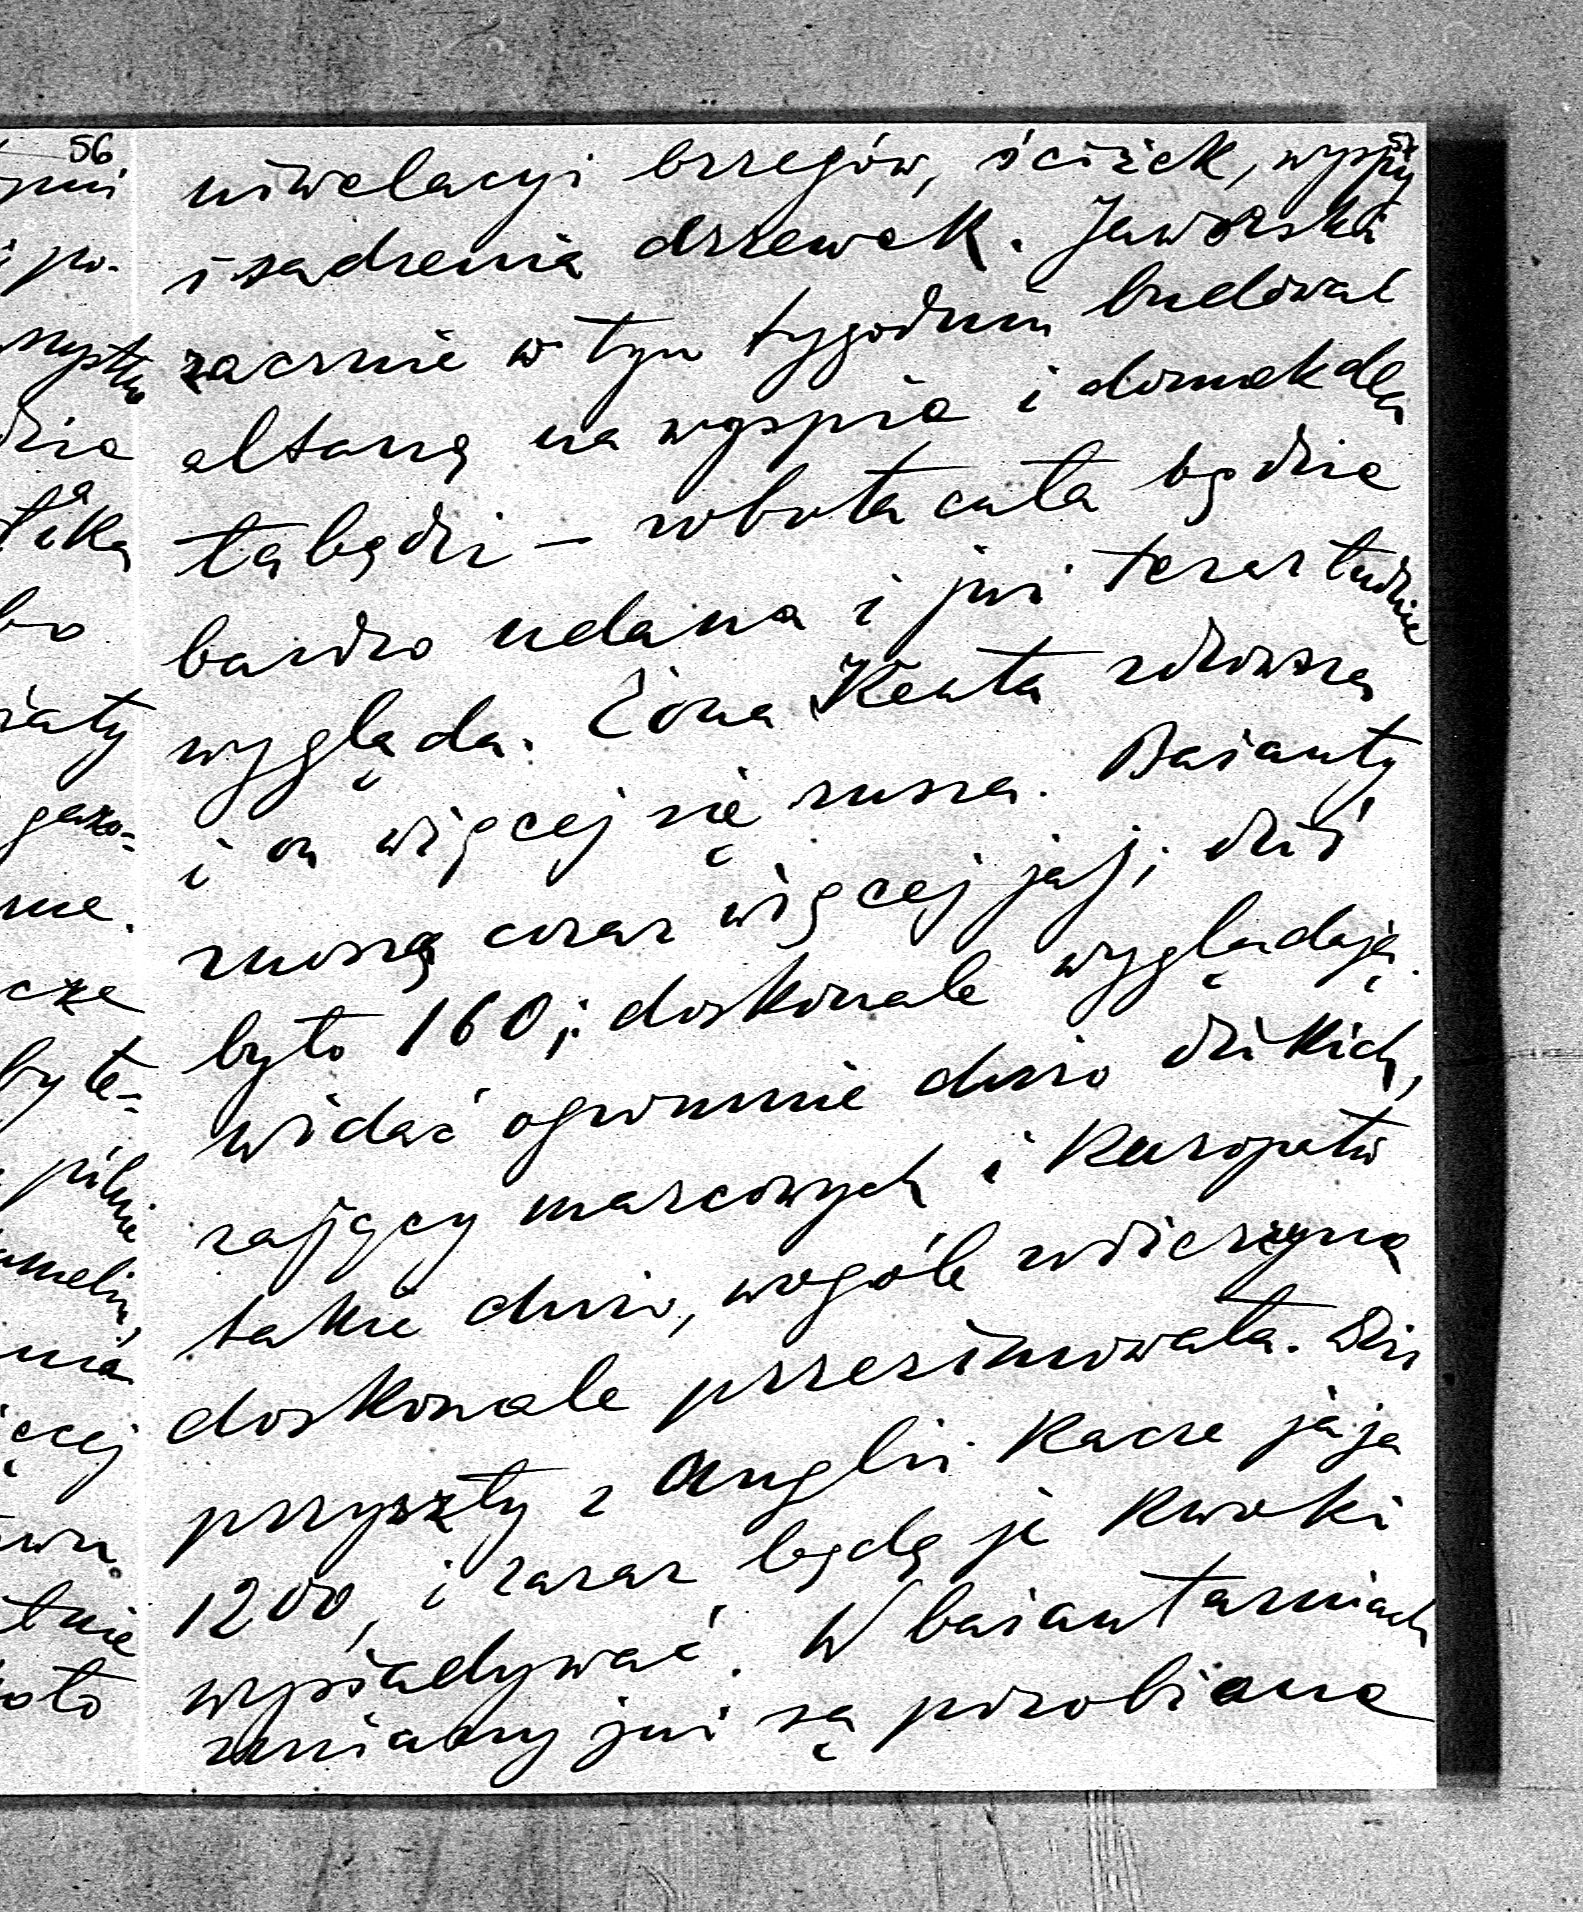 56
57
niwelacyi brzegów, ścieżek, wyspy
i sadzenia drzewek. Jaworski
zacznie w tym tygodniu budować
altanę na wyspie i domek dla
łabędzi – robota cała będzie
bardzo udana i już teraz ładnie
wygląda. Żona Kenta zdrowsza
i on więcej się rusza. Bażanty
znoszą coraz więcej jaj; dziś
było 160; doskonale wyglądają.
widać ogromnie dużo dzikich,
zajęcy marcowych i kuropatw
także dużo, wogóle zwierzyna
doskonale przezimowała. Dziś
przyszły z Anglii kacze jaja
1200, i zaraz będą je kwoki
wysiadywać. W bażantarniach
zmiany już są porobione